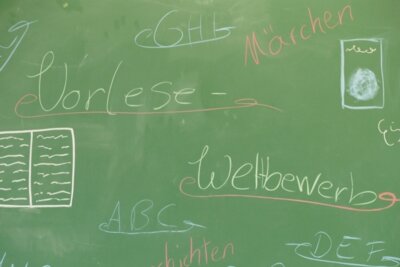 GHI
Märchen
Vorlese-
Wettbewerb
ABC
chichten
DEF